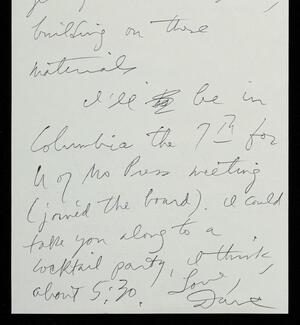 building on those
materials
I'll be in
Columbia the 7th for
U of Mo Press meeting
(joined the board). I could
take you along to a
cocktail party, I think,
about 5:30. Love,
Dave